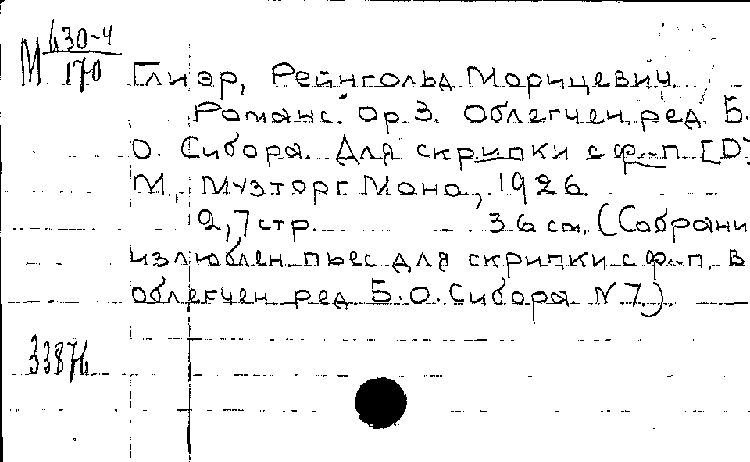 М 430-4
170
Глиэр, Рейнгольд Морицевич.
Романс. Op. 3. Облегчен. ред. Б.
О. Сибора. Для скрипки с ф.-п. [D]
М., Музторг Моно, 1926
2,7 стр. 36 см. (Собрани
излюблен. пьес для скрипки с ф.-п. в
облегчен ред Б.О. Сибора N 7)